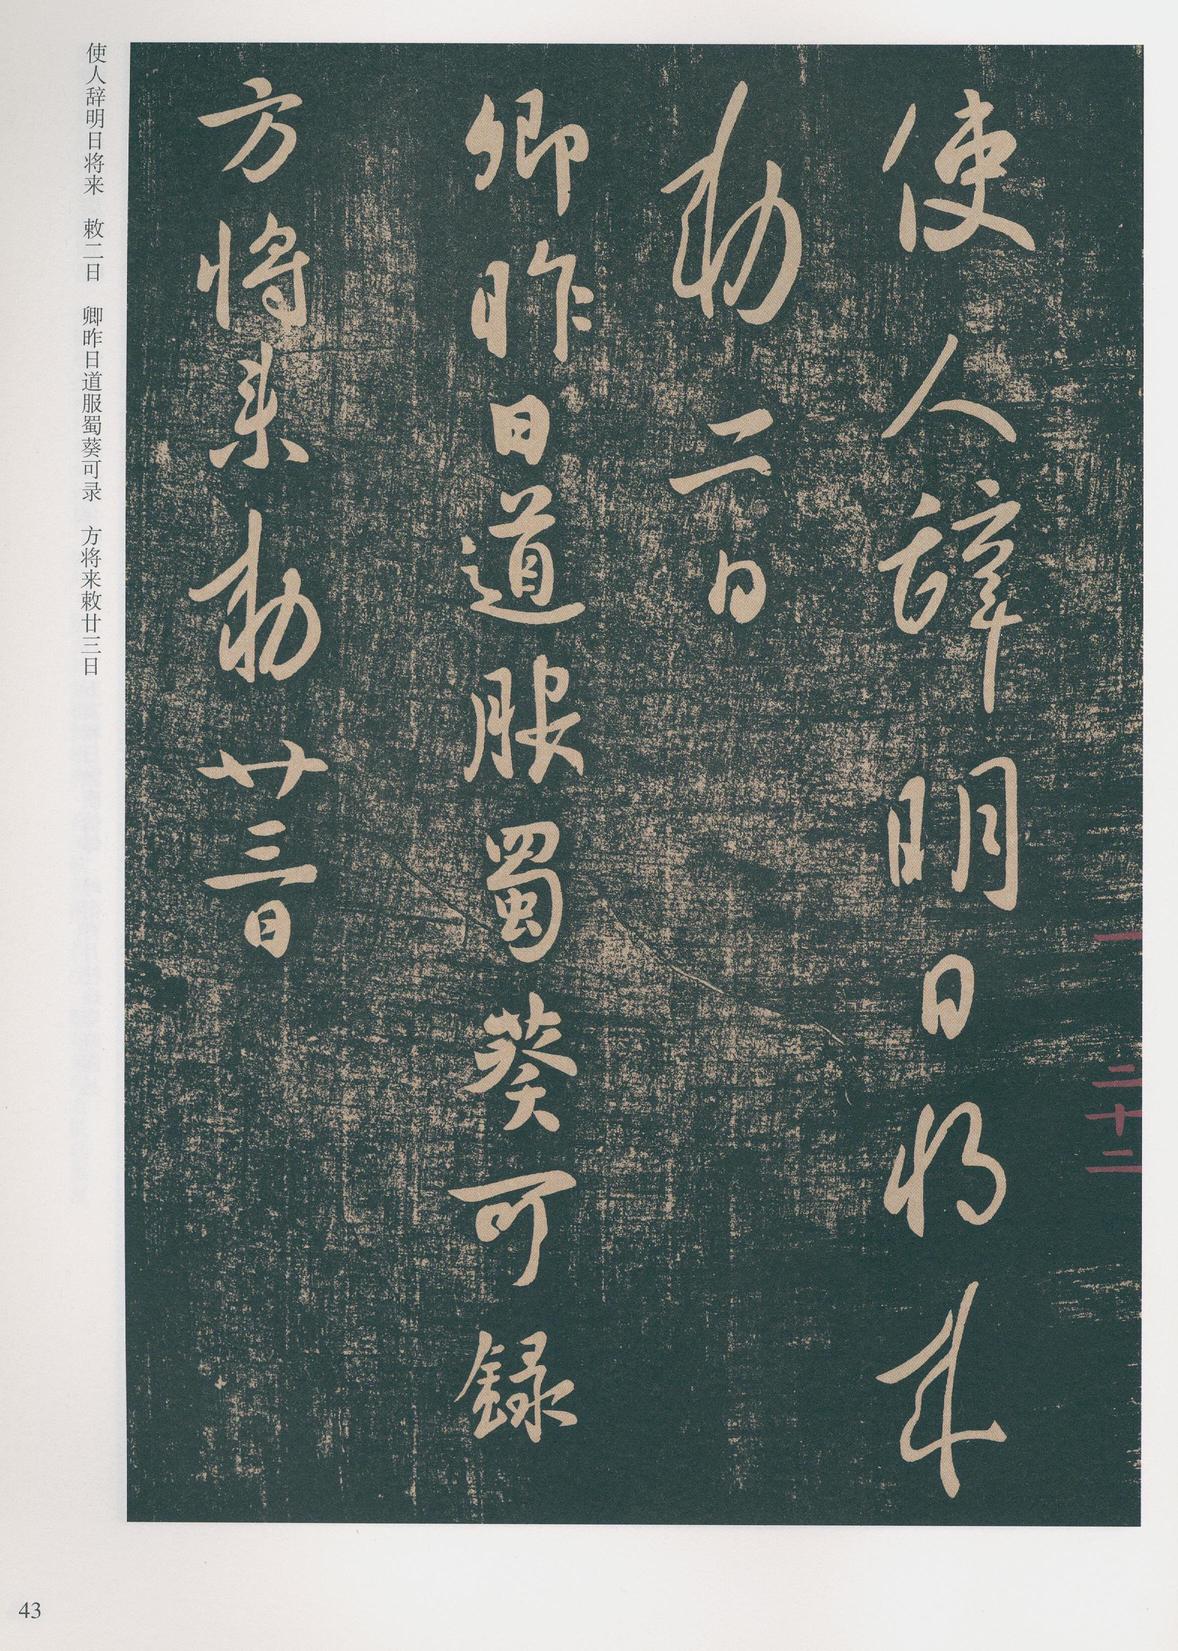 使人辭明日将来
勅二日
卿昨日道服蜀葵可録
方将来勅廿三日
一
二十二
使人辞明日将来　敕二日　卿昨日道服蜀葵可录　方将来敕廿三日
43